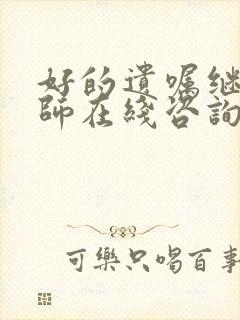 好的遺囑继
師在綫咨詢
可樂只喝百事